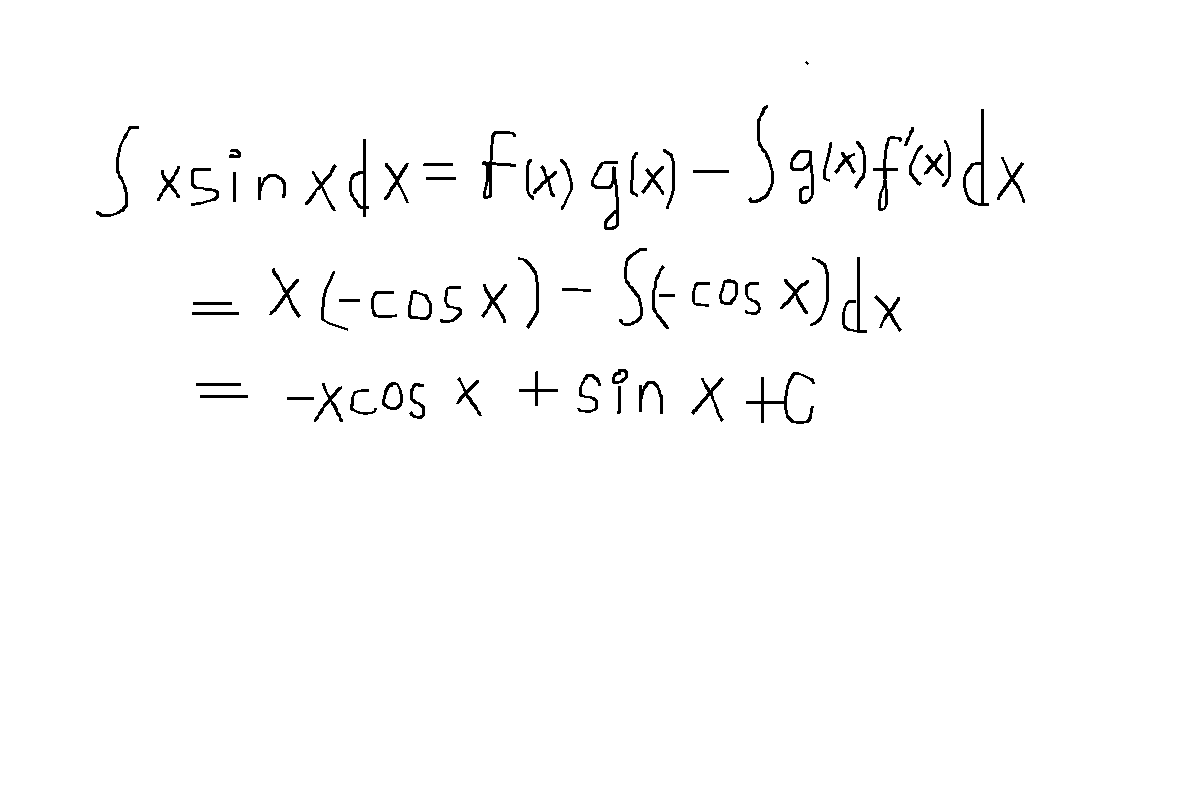 ∫ x sin x dx = f(x) g(x) − ∫ g(x) f′(x) dx
= x (−cos x) − ∫(−cos x) dx
= −x cos x + sin x + C